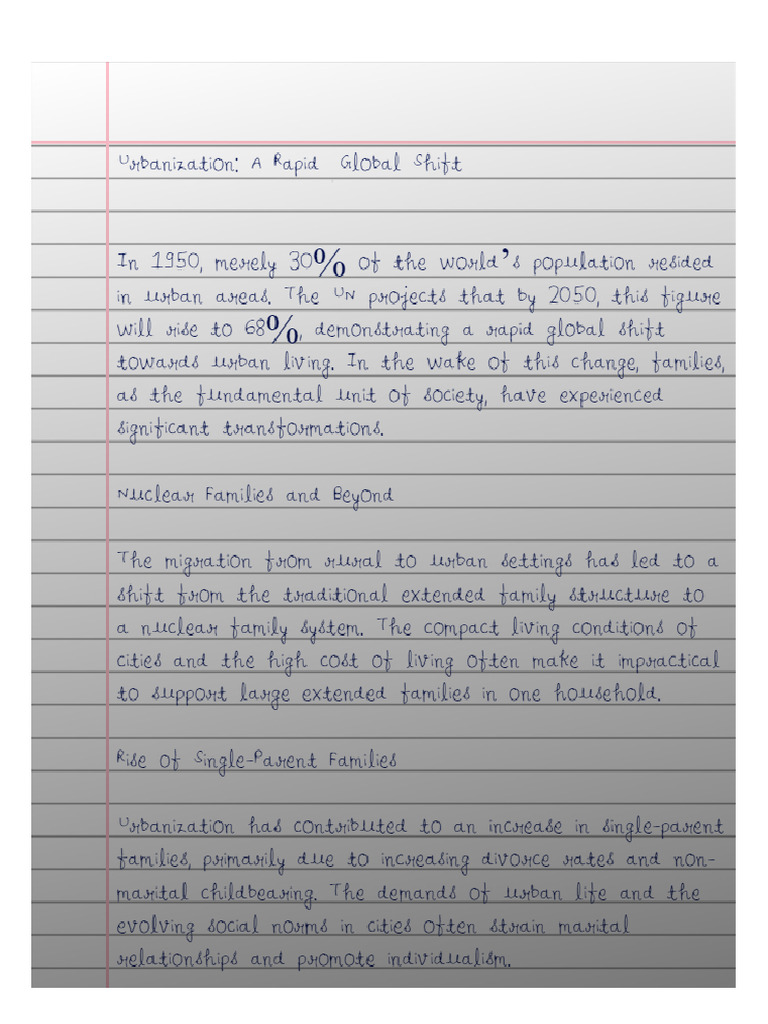 Urbanization: A Rapid Global Shift
In 1950, merely 30% of the world's population resided
in urban areas. The UN projects that by 2050, this figure
will rise to 68%, demonstrating a rapid global shift
towards urban living. In the wake of this change, families,
as the fundamental unit of society, have experienced
significant transformations.
Nuclear Families and Beyond
The migration from rural to urban settings has led to a
shift from the traditional extended family structure to
a nuclear family system. The compact living conditions of
cities and the high cost of living often make it impractical
to support large extended families in one household.
Rise of Single-Parent Families
Urbanization has contributed to an increase in single-parent
families, primarily due to increasing divorce rates and non-
marital childbearing. The demands of urban life and the
evolving social norms in cities often strain marital
relationships and promote individualism.